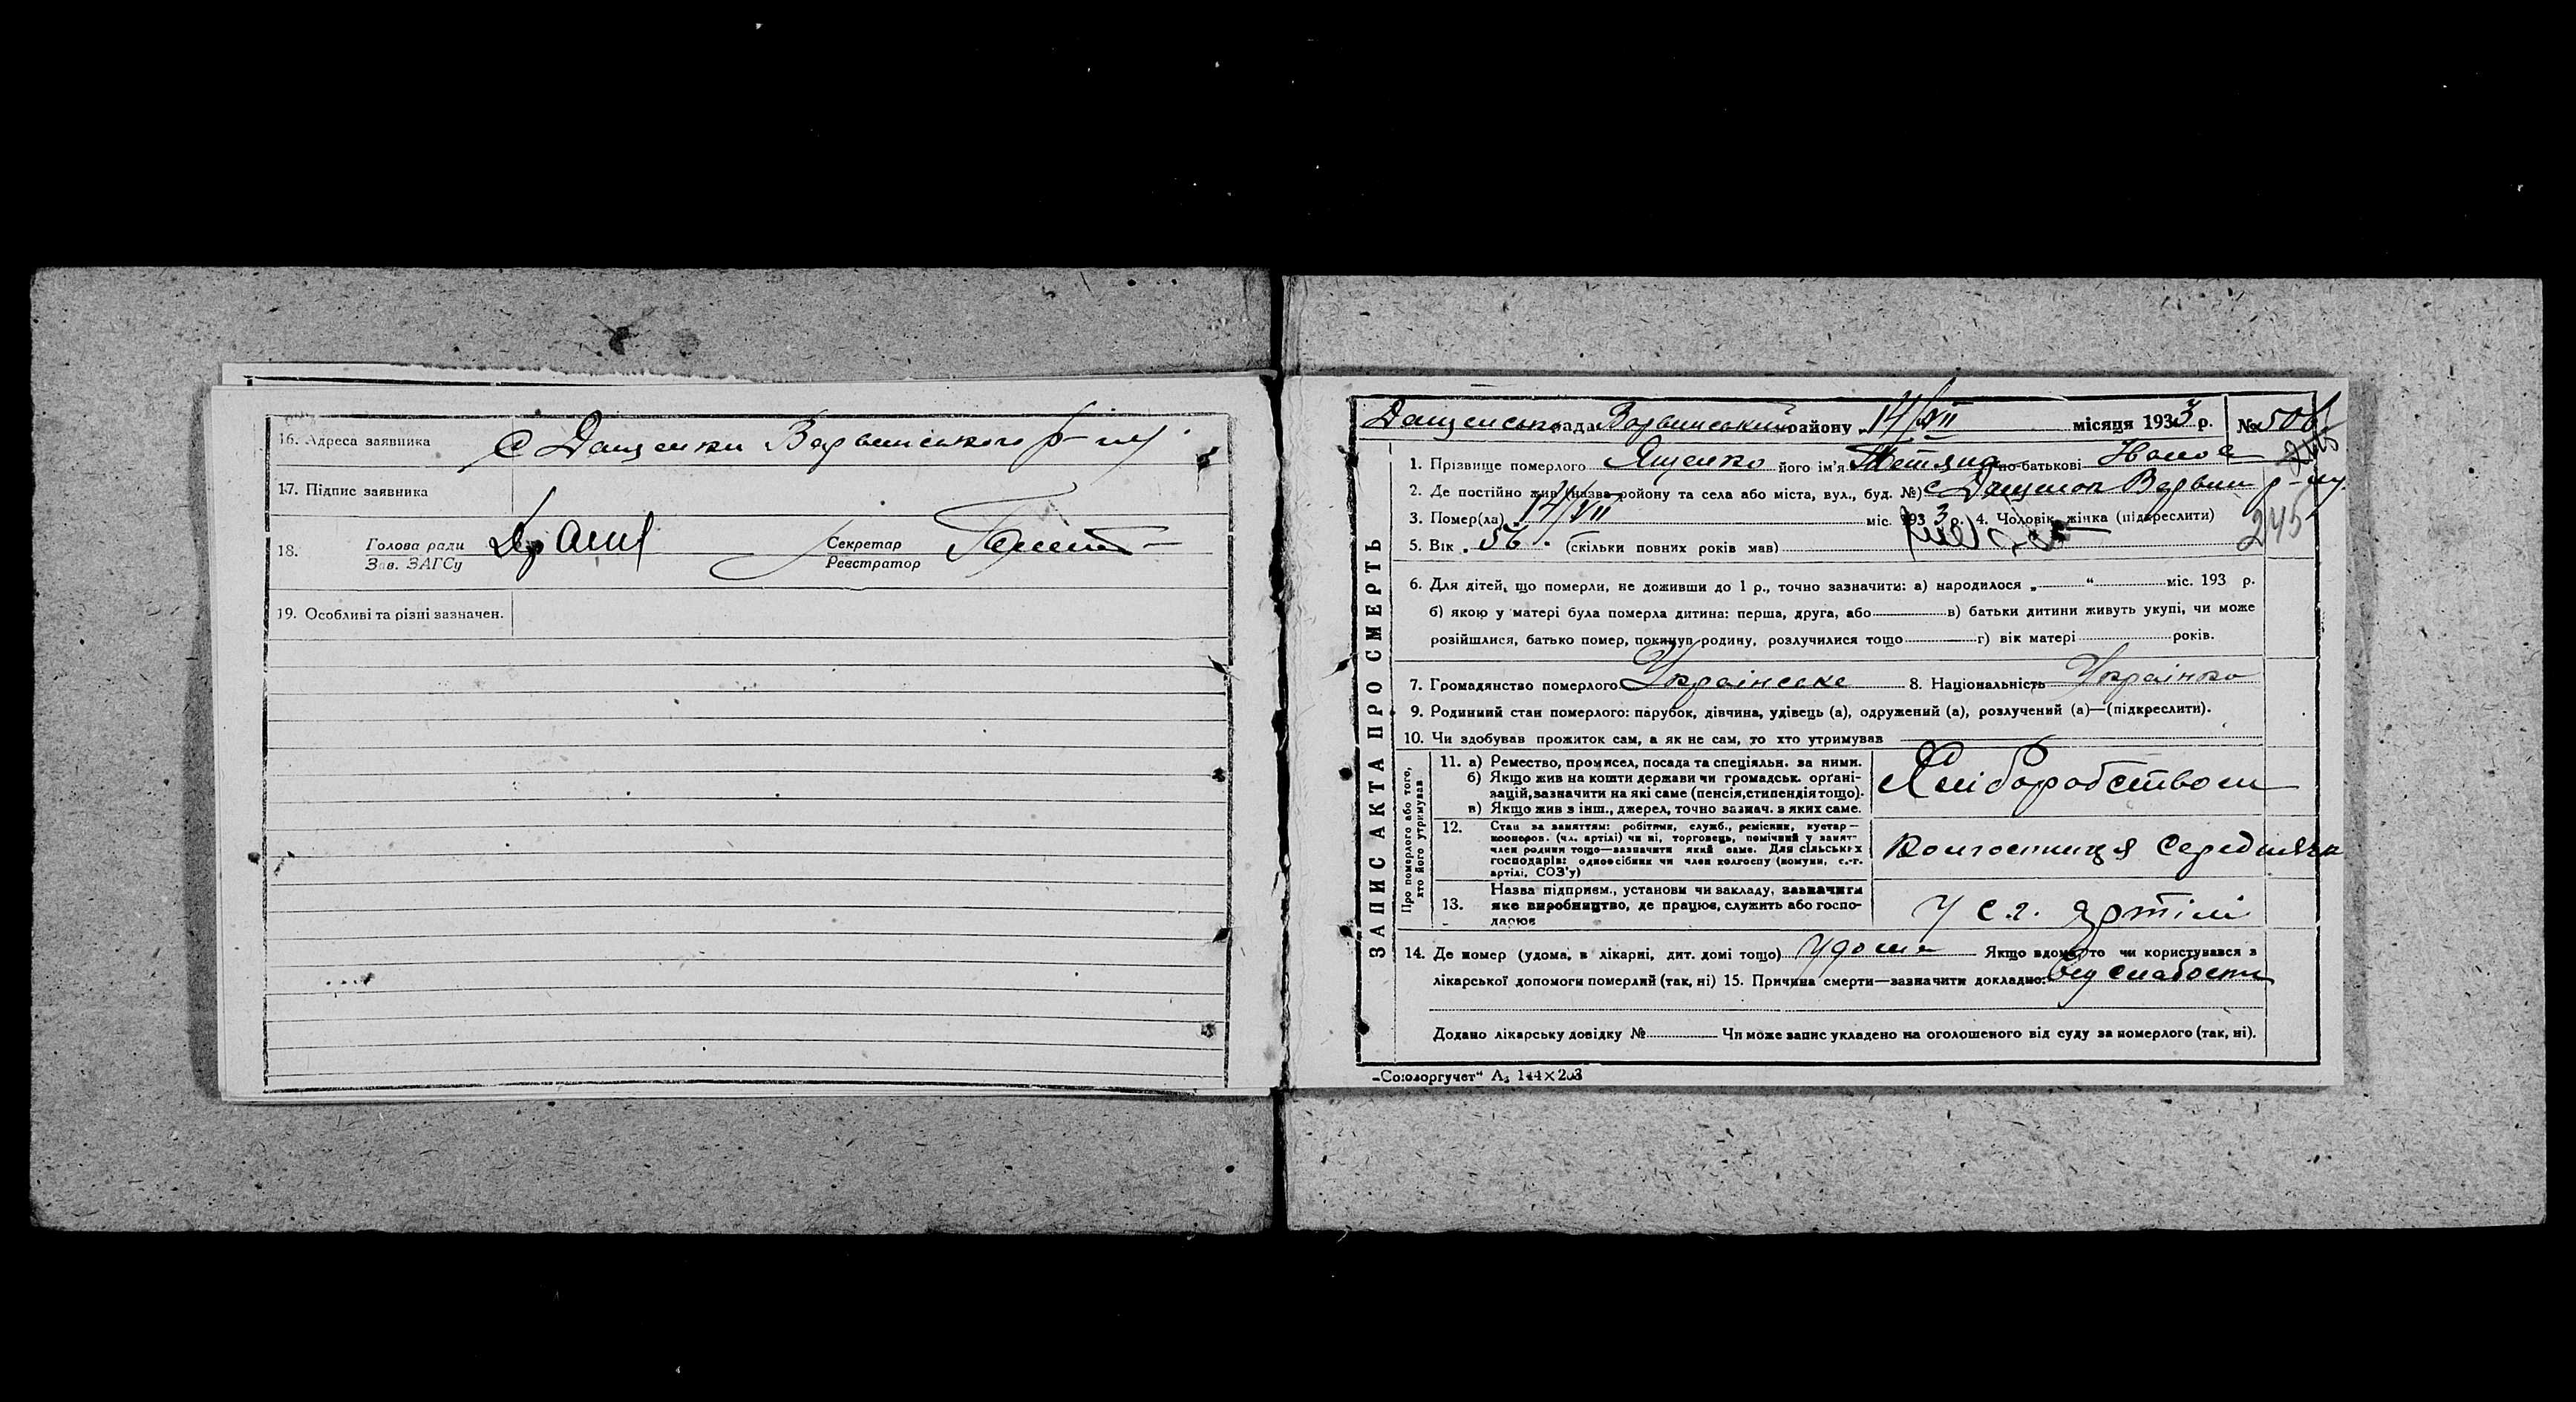 16. Адреса заявника С Дащенки Варвинського р-ну
17. Підпис заявника
18. Голова ради Секретар
Зав. ЗАГСу Реєстратор
19. Особливі та різні зазначен.
ЗАПИС АКТА ПРО СМЕРТЬ
Дащенська рада Варвинський району „14/VII місяця 1933 р. №
245
1. Прізвище померлого Ященко його ім'я Тетяна по-батькові
2. Де постійно жив (назва району та села або міста, вул., буд. №) с Дащенки Варвин р-ну.
3. Помер(ла) „14/VII міс. 1933 4. Чоловік, жінка (підкреслити)
245
5. Вік „56". (скільки повних років мав)
6. Для дітей, що померли, не доживши до 1 р., точно зазначити: а) народилося „ “ міс. 193 р.
б) якою у матері була померла дитина: перша, друга, або в) батьки дитини живуть укупі, чи може
розійшлися, батько помер, покинув родину, розлучилися тощо г) вік матері років.
7. Громадянство померлого Українське 8. Національність Українка
9. Родинний стан померлого: парубок, дівчина, удівець (а), одружений (а), розлучений (а)—(підкреслити).
10. Чи здобував прожиток сам, а як не сам, то хто утримував
Про померлого або того, хто його утримував
11. а) Ремество, промисел, посада та спеціяльн. за ними.
б) Якщо жив на кошти держави чи громадськ. орґані-
зацій, зазначити на які саме (пенсія, стипендія тощо).
в) Якщо жив з інш., джерел, точно зазнач. з яких саме.
Хліборобством
12. Стан за заняттям: робітник, служб., ремісник, кустар—
коопєров. (чл. артілі) чи ні, торговець, помічний у занят-
член родини тощо—зазначити який саме. Для сільських
господарів: одноосібник чи член колгоспу (комуни, с.-г.
артілі, СОЗ'у)
Колгоспниця Середнячка
13. Назва підприєм., установи чи закладу, зазначити
яке виробництво, де працює, служить або госпо-
дарює
У с.г. Артілі
14. Де помер (удома, в лікарні, дит. домі тощо) Удома Якщо вдома, то чи користувався з
лікарської допомоги померлий (так, ні) 15. Причина смерти—зазначити докладно: Від слабости
Додано лікарську довідку № Чи може запис укладено на оголошеного від суду за померлого (так, ні).
„Союзоргучет“ А₅ 144×203